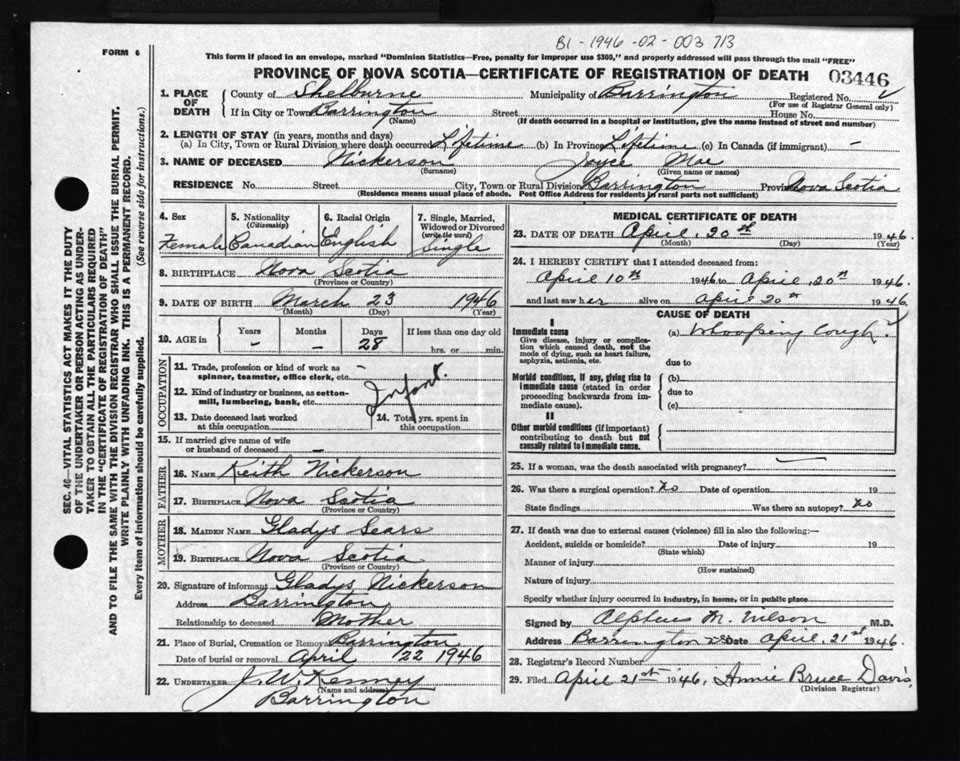 B1-1946-02-003713
FORM 6
This form if placed in an envelope, marked "Dominion Statistics—Free, penalty for improper use $300," and properly addressed will pass through the mail "FREE"
PROVINCE OF NOVA SCOTIA—CERTIFICATE OF REGISTRATION OF DEATH 03446
1. PLACE OF DEATH County of Shelburne Municipality of Barrington Registered No.
(For use of Registrar General only)
If in City or Town Barrington Street House No.
(Name) (If death occurred in a hospital or institution, give the name instead of street and number)
2. LENGTH OF STAY (in years, months and days)
(a) In City, Town or Rural Division where death occurred Lifetime (b) In Province Lifetime (c) In Canada (if immigrant) —
3. NAME OF DECEASED Nickerson Joyce Mae
(Surname) (Given name or names)
RESIDENCE No. Street City, Town or Rural Division Barrington Province Nova Scotia
(Residence means usual place of abode. Post Office Address for residents in rural parts not sufficient)
4. Sex 5. Nationality (Citizenship) 6. Racial Origin 7. Single, Married, Widowed or Divorced (write the word)
Female Canadian English Single
8. BIRTHPLACE Nova Scotia
(Province or Country)
9. DATE OF BIRTH March 23 1946
(Month) (Day) (Year)
10. AGE in Years Months Days If less than one day old
— — 28 hrs. or min.
OCCUPATION
11. Trade, profession or kind of work as spinner, teamster, office clerk, etc. —
12. Kind of industry or business, as cotton-mill, lumbering, bank, etc. Infant.
13. Date deceased last worked at this occupation 14. Total yrs. spent in this occupation
15. If married give name of wife or husband of deceased —
FATHER
16. NAME Keith Nickerson
17. BIRTHPLACE Nova Scotia
(Province or Country)
MOTHER
18. MAIDEN NAME Gladys Sears
19. BIRTHPLACE Nova Scotia
(Province or Country)
20. Signature of informant Gladys Nickerson
Address Barrington
Relationship to deceased Mother
21. Place of Burial, Cremation or Removal Barrington
Date of burial or removal April 22 1946
22. UNDERTAKER J. W. Kenney
(Name and address)
Barrington
MEDICAL CERTIFICATE OF DEATH
23. DATE OF DEATH April, 20th 1946.
(Month) (Day) (Year)
24. I HEREBY CERTIFY that I attended deceased from:
April 10th 1946 to April, 20th 1946.
and last saw her alive on April 20th 1946
CAUSE OF DEATH
I
Immediate cause (a) Whooping Cough
Give disease, injury or complication which caused death, not the mode of dying, such as heart failure, asphyxia, asthenia, etc.
due to
Morbid conditions, if any, giving rise to immediate cause (stated in order proceeding backwards from immediate cause).
(b)
due to
(c)
II
Other morbid conditions (if important) contributing to death but not causally related to immediate cause.
25. If a woman, was the death associated with pregnancy?
26. Was there a surgical operation? No Date of operation 19
State findings Was there an autopsy? No
27. If death was due to external causes (violence) fill in also the following:—
Accident, suicide or homicide? Date of injury 19
(State which)
Manner of injury
(How sustained)
Nature of injury
Specify whether injury occurred in industry, in home, or in public place
Signed by Alpheus M. Wilson M.D.
Address Barrington NS Date April, 21st 1946.
28. Registrar's Record Number
29. Filed April 21st 1946, Annie Bruce Davis,
(Division Registrar)
SEC. 46—VITAL STATISTICS ACT MAKES IT THE DUTY
OF THE UNDERTAKER OR PERSON ACTING AS UNDER-
TAKER TO OBTAIN ALL THE PARTICULARS REQUIRED
IN THE "CERTIFICATE OF REGISTRATION OF DEATH"
AND TO FILE THE SAME WITH THE DIVISION REGISTRAR WHO SHALL ISSUE THE BURIAL PERMIT.
WRITE PLAINLY WITH UNFADING INK. THIS IS A PERMANENT RECORD.
Every item of information should be carefully supplied. (See reverse side for instructions.)